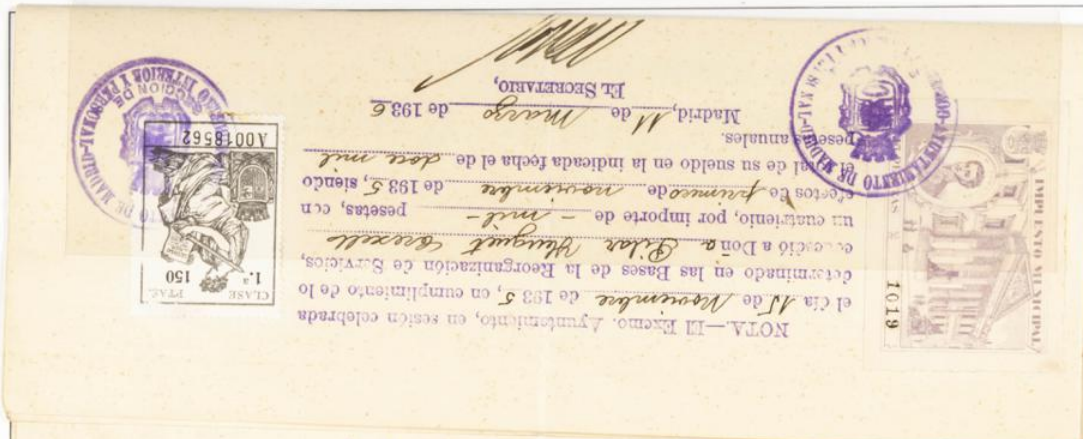 NOTA.—El Excmo. Ayuntamiento, en sesión celebrada
el día 15 de Noviembre de 1935, en cumplimiento de lo
determinado en las Bases de la Reorganización de Servicios,
concedió a Doña Pilar Huguet
un cuatrienio, por importe de - mil - pesetas, con
efectos de primero de noviembre de 1935, siendo
el total de su sueldo en la indicada fecha el de doce mil
pesetas anuales.
Madrid, 11 de marzo de 1936
EL SECRETARIO,
IMPUESTO MUNICIPAL
1019
CLASE 1.ª
PTAS. 150
A0018562
AYUNTAMIENTO DE MADRID
DE MADRID
INTERIOR Y PERSONAL